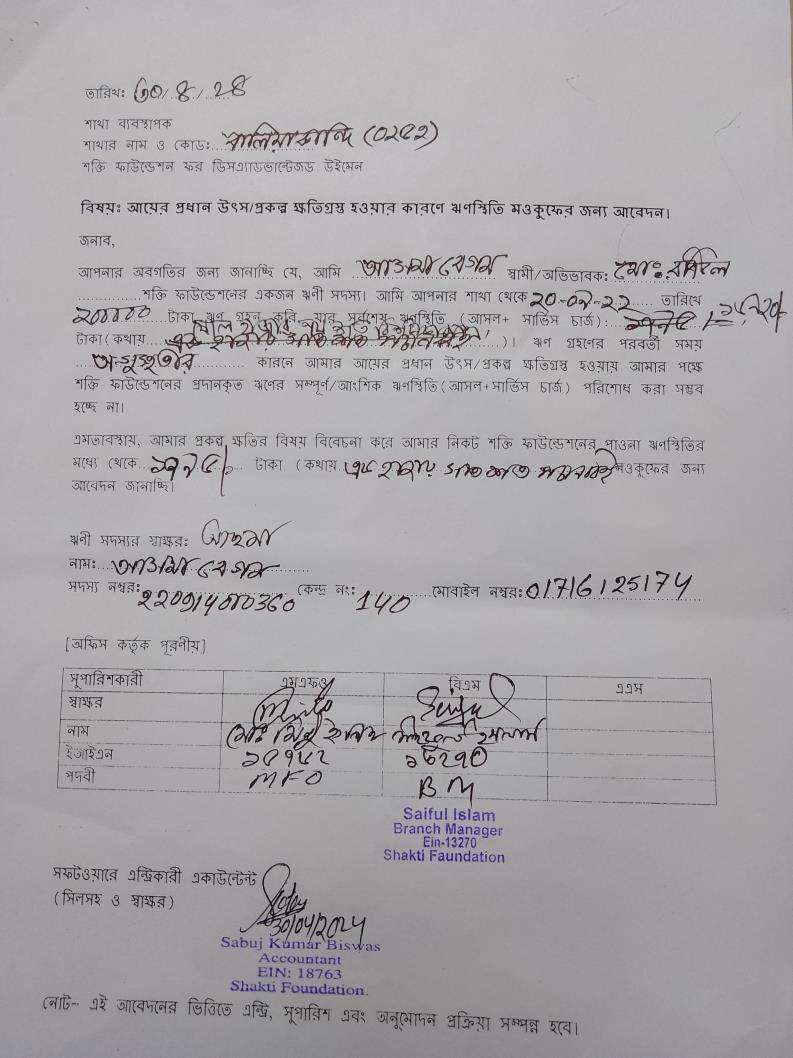 তারিখ: ৩০/৪/২৪
শাখা ব্যবস্থাপক
শাখার নাম ও কোড: বালিয়াকান্দি (০২৫২)
শক্তি ফাউন্ডেশন ফর ডিসএ্যাডভান্টেজড উইমেন
বিষয়: আয়ের প্রধান উৎস/প্রকল্প ক্ষতিগ্রস্থ হওয়ার কারণে ঋণস্থিতি মওকুফের জন্য আবেদন।
জনাব,
আপনার অবগতির জন্য জানাচ্ছি যে, আমি বেগম স্বামী/অভিভাবক: মোঃ
শক্তি ফাউন্ডেশনের একজন ঋণী সদস্য। আমি আপনার শাখা থেকে ২০-০৯-২২ তারিখে
২০০০০০ টাকা ঋণ গ্রহন করি, যার সর্বশেষ ঋণস্থিতি (আসল+ সার্ভিস চার্জ):
টাকা(কথায় )। ঋণ গ্রহণের পরবর্তী সময়
অসুস্থতার কারনে আমার আয়ের প্রধান উৎস/প্রকল্প ক্ষতিগ্রস্থ হওয়ায় আমার পক্ষে
শক্তি ফাউন্ডেশনের প্রদানকৃত ঋণের সম্পূর্ণ/আংশিক ঋণস্থিতি(আসল+সার্ভিস চার্জ) পরিশোধ করা সম্ভব
হচ্ছে না।
এমতাবস্থায়, আমার প্রকল্প ক্ষতির বিষয় বিবেচনা করে আমার নিকট শক্তি ফাউন্ডেশনের পাওনা ঋণস্থিতির
মধ্যে থেকে টাকা (কথায় এক হাজার সাত শত মওকুফের জন্য
আবেদন জানাচ্ছি।
ঋণী সদস্যের স্বাক্ষর:
নাম: বেগম
সদস্য নম্বর: কেন্দ্র নং: 140 মোবাইল নম্বর: 01716125174
[অফিস কর্তৃক পূরণীয়]
সুপারিশকারী এমএফও বিএম এএস
স্বাক্ষর
নাম মোঃ
ইআইএন ১৩২৭০
পদবী MFO BM
Saiful Islam
Branch Manager
Ein-13270
Shakti Faundation
সফটওয়ারে এন্ট্রিকারী একাউন্টেন্ট
(সিলসহ ও স্বাক্ষর)
30/04/2024
Sabuj Kumar Biswas
Accountant
EIN: 18763
Shakti Foundation.
নোট- এই আবেদনের ভিত্তিতে এন্ট্রি, সুপারিশ এবং অনুমোদন প্রক্রিয়া সম্পন্ন হবে।